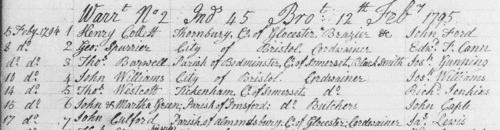 Warrt No 2 Ind 45 Brot 12th Feby 1795
5 Feby 1794 1 Henry Collett Thornbury, Co of Glocester Brazier & John Ford
8 do 2 Geo Spurrier City of Bristol Cordwainer Edwd T. Cann
do do 3 Thos Barwell Parish of Bedminster, Co of Somerset, Black Smith Jos Gunning
10 do 4 John Williams City of Bristol Cordwainer Jos Williams
14 do 5 Thos Westcott Tickenham, Co of Somerset do Richd Jenkins
16 do 6 John & Martha Green, Parish of do Butchers John Caple
17 do 7 John Culford Parish of Almondsbury, Co of Glocester, Cordwainer Jas Lewis